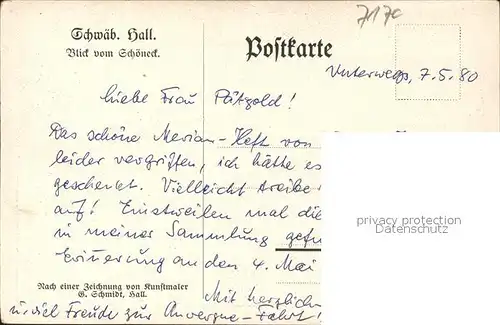 Schwäb. Hall.
Blick vom Schöneck.
Postkarte
7170
Unterwegs, 7.5.80
Liebe Frau Pätzold!
Das schöne Merian-Heft von
leider vergriffen, ich hätte es
geschenkt. Vielleicht treibe
auf! Einstweilen mal die
in meiner Sammlung gefu
Erinnerung an den 4. Mai
Mit herzlich
u. viel Freude zur Auvergne-Fahrt!
Nach einer Zeichnung von Kunstmaler
G. Schmidt, Hall.
privacy protection
Datenschutz